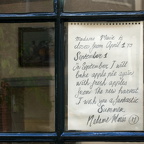 Madame Marie is
closed from April to
September!
In September I will
bake apple pies again
with fresh apples
from the new harvest
I wish you a fantastic
Summer